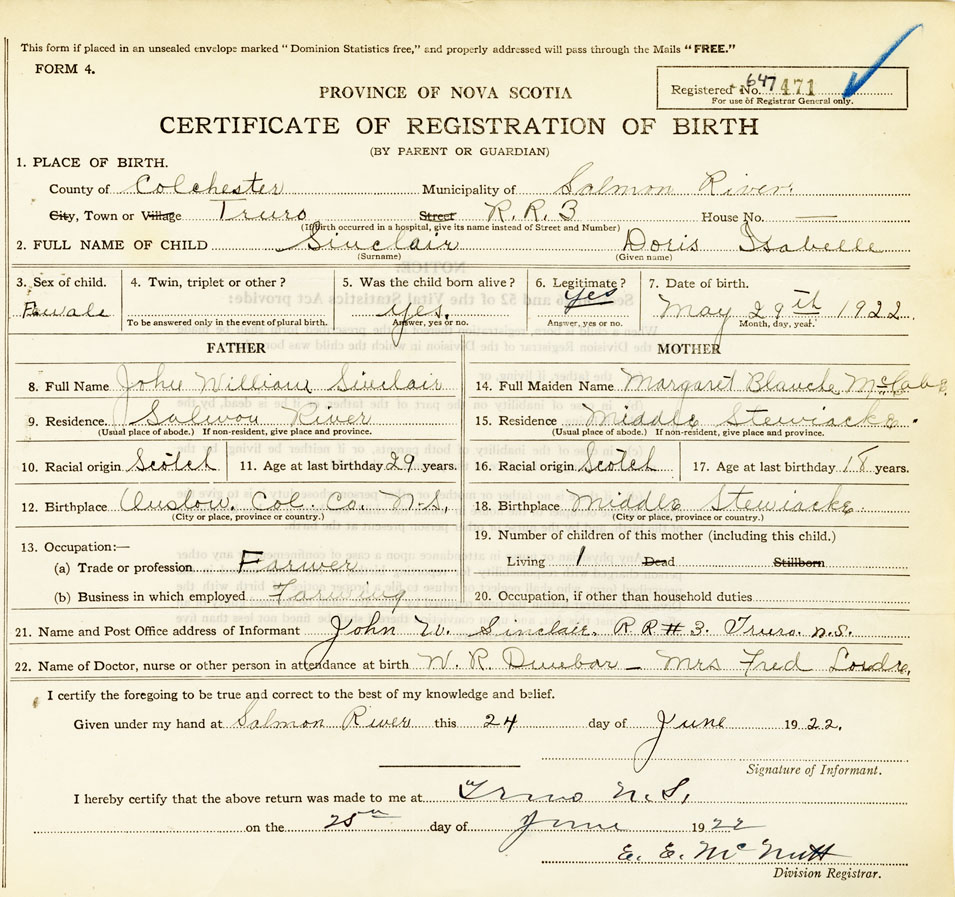 This form if placed in an unsealed envelope marked "Dominion Statistics free," and properly addressed will pass through the Mails "FREE."
FORM 4.
Registered No. 647 471
For use of Registrar General only.
PROVINCE OF NOVA SCOTIA
CERTIFICATE OF REGISTRATION OF BIRTH
(BY PARENT OR GUARDIAN)
1. PLACE OF BIRTH.
County of Colchester Municipality of Salmon River
City, Town or Village Truro Street R.R. 3 House No. —
(If birth occurred in a hospital, give its name instead of Street and Number)
2. FULL NAME OF CHILD Sinclair Doris Isabelle
(Surname) (Given name)
3. Sex of child. 4. Twin, triplet or other? 5. Was the child born alive? 6. Legitimate? 7. Date of birth.
Female yes. yes May 29th 1922
To be answered only in the event of plural birth. Answer, yes or no. Answer, yes or no. Month, day, year.
FATHER MOTHER
8. Full Name John William Sinclair 14. Full Maiden Name Margaret Blanche McCabe
9. Residence. Salmon River 15. Residence Middle Stewiacke.
(Usual place of abode.) If non-resident, give place and province. (Usual place of abode.) If non-resident, give place and province.
10. Racial origin Scotch 11. Age at last birthday 29 years. 16. Racial origin Scotch 17. Age at last birthday 18 years.
12. Birthplace Onslow. Col. Co. N.S. 18. Birthplace Middle Stewiacke
(City or place, province or country.) (City or place, province or country.)
13. Occupation:— 19. Number of children of this mother (including this child.)
(a) Trade or profession Farmer Living 1 Dead Stillborn
(b) Business in which employed Farming 20. Occupation, if other than household duties
21. Name and Post Office address of Informant John W. Sinclair. R. R # 3. Truro. N.S.
22. Name of Doctor, nurse or other person in attendance at birth W. R. Dunbar — Mrs Fred
I certify the foregoing to be true and correct to the best of my knowledge and belief.
Given under my hand at Salmon River this 24 day of June 1922.
Signature of Informant.
I hereby certify that the above return was made to me at Truro N.S.
on the 25th day of June 1922
E. E. McNutt
Division Registrar.